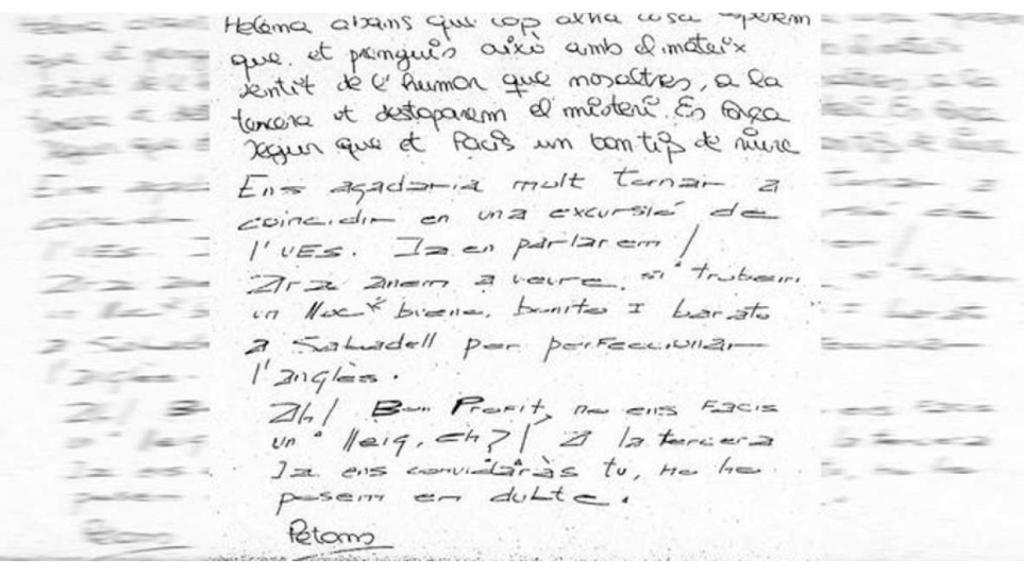 Helena abans que cap altra cosa esperem
que et prenguis això amb el mateix
sentit de l'humor que nosaltres, a la
tercera et destaparem el misteri. És força
segur que et facis un bon tip de riure
Ens agadaria molt tornar a
coincidir en una excursió de
l'UES. Ja en parlarem!
Ara anem a veure, si trobem
un lloc bueno, bonito I barato
a Sabadell per perfeccionar
l'anglès.
Ah! Bon Profit, no ens facis
un lleig, eh?! A la tercera
Ja ens convidaràs tu, no ho
posem en dubte.
Petons